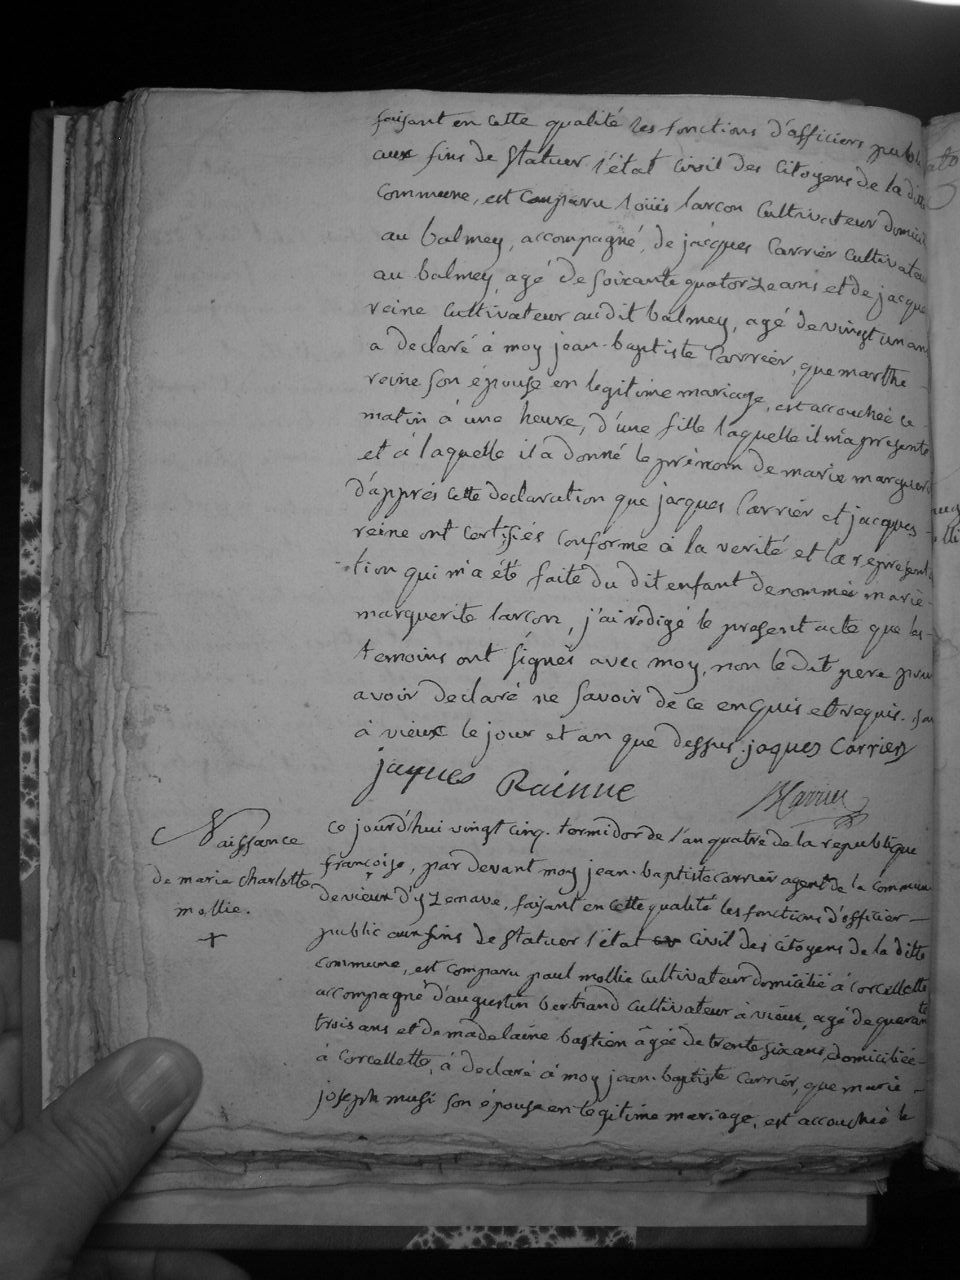 faisant en cette qualité les fonctions d'officiers public
aux fins de statuer l'état civil des citoyens de la ditte
commune, est comparu loüis larcon cultivateur domicil
au balmey, accompagné, de jacques Carrier cultivateu
au balmey, agé de soixante quatorze ans et de jacque
reine cultivateur au dit balmey, agé de vingt un ans
a declaré à moy jean-baptiste Carrier, que marthe
reine son épouse en legitime mariage, est accouchée ce
matin à une heure, d'une fille laquelle il m'a presenté
et à laquelle il a donné le prenom de marie marguerit
d'apprés cette declaration que jacques Carrier et jacques
reine ont certifiés conforme à la verité et la represent
tion qui m'a été faite du dit enfant denommée marie
marguerite larcon, j'ai redigé le present acte que les
temoins ont signés avec moy, non le dit pere pour
avoir declaré ne savoir de ce enquis et requis. fai
à vieux le jour et an que dessus. jaques Carrier
jaques Rainne BCarrier
Naissance
de marie charlotte
mollie.
+
ce jourd'hui vingt cinq. termidor de l'an quatre de la republique
françoise, par devant moy jean-baptiste carrier agent de la commun
de vieux d'yzenave, faisant en cette qualité les fonctions d'officier
public aux fins de statuer l'état civil des citoyens de la ditte
commune, est comparu paul mollie cultivateur domicilié à corcellette
accompagné d'augustin bertrand cultivateur à vieux, agé de quarante
trois ans et de madelaine bastien âgée de trente six ans, domiciliée
à Corcellette, à declaré à moy jean-baptiste carrier, que marie
joseph musi son épouse en legitime mariage, est accouchée le